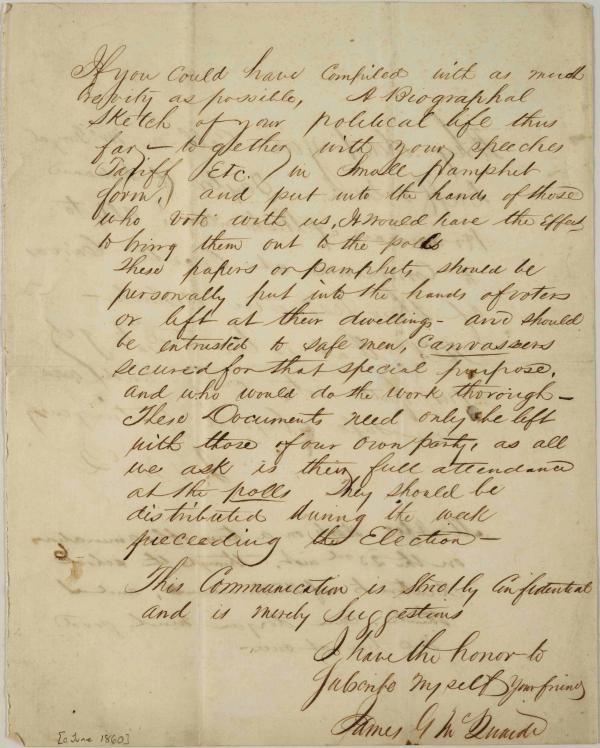 If you could have Compiled with as much
brevity as possible, A Biographal
Sketch of your political life thus
far — together with your speeches
Tariff Etc. in Small pamphet
form, and put into the hands of those
who vote with us, It would have the Effect,
to bring them out to the polls
These papers or pamphets, should be
personally put into the hands of voters
or left at their dwellings — and should
be entrusted to safe men, Canvassers
secured for that special purpose,
and who would do the work thorough —
These Documents need only be left
with those of our own party, as all
we ask is their full attendance
at the polls They should be
distributed during the week
preceeding the Election —
This Communication is Strictly Confidential
and is merely Suggestions
I have the honor to
Subscribe myself Your friend
James G Mc Quaide
[c. June 1860]